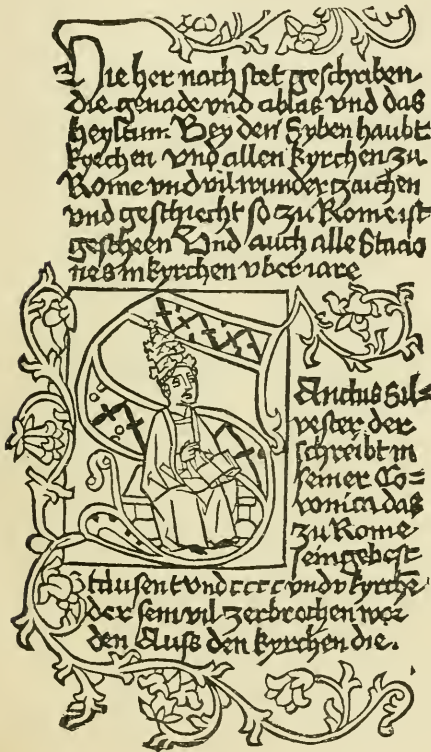 Die her nach stet geschriben
die genade vnd ablas vnd das
heyltum. Bey den Syben haubt
kyrchen vnd allen kyrchen zu
Rome vnd vil wunderzaichen
vnd geschiecht so zu Rome ist
gescheen Vnd auch alle Stacio
nes in kyrchen vber iare
Sanctus Sil=
vester der
schreibt in
seiner Co=
ronica das
zu Rome
sein gebest
tausent vnd cccc vnd v kyrche
der sein vil zerbrochen wor
den Auss den kyrchen die.